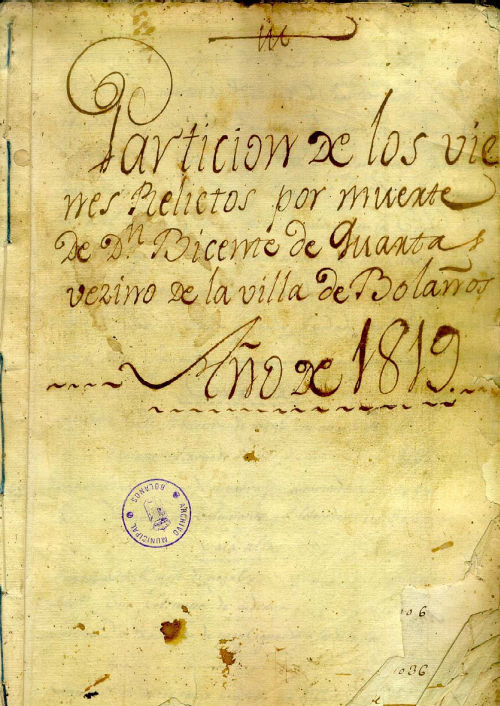 Particion de los vie
nes Relictos por muerte
de Dn Bicente de Huarta
vezino de la villa de Bolaños
Año de 1819.
ARCHIVO MUNICIPAL
BOLAÑOS
106
1086